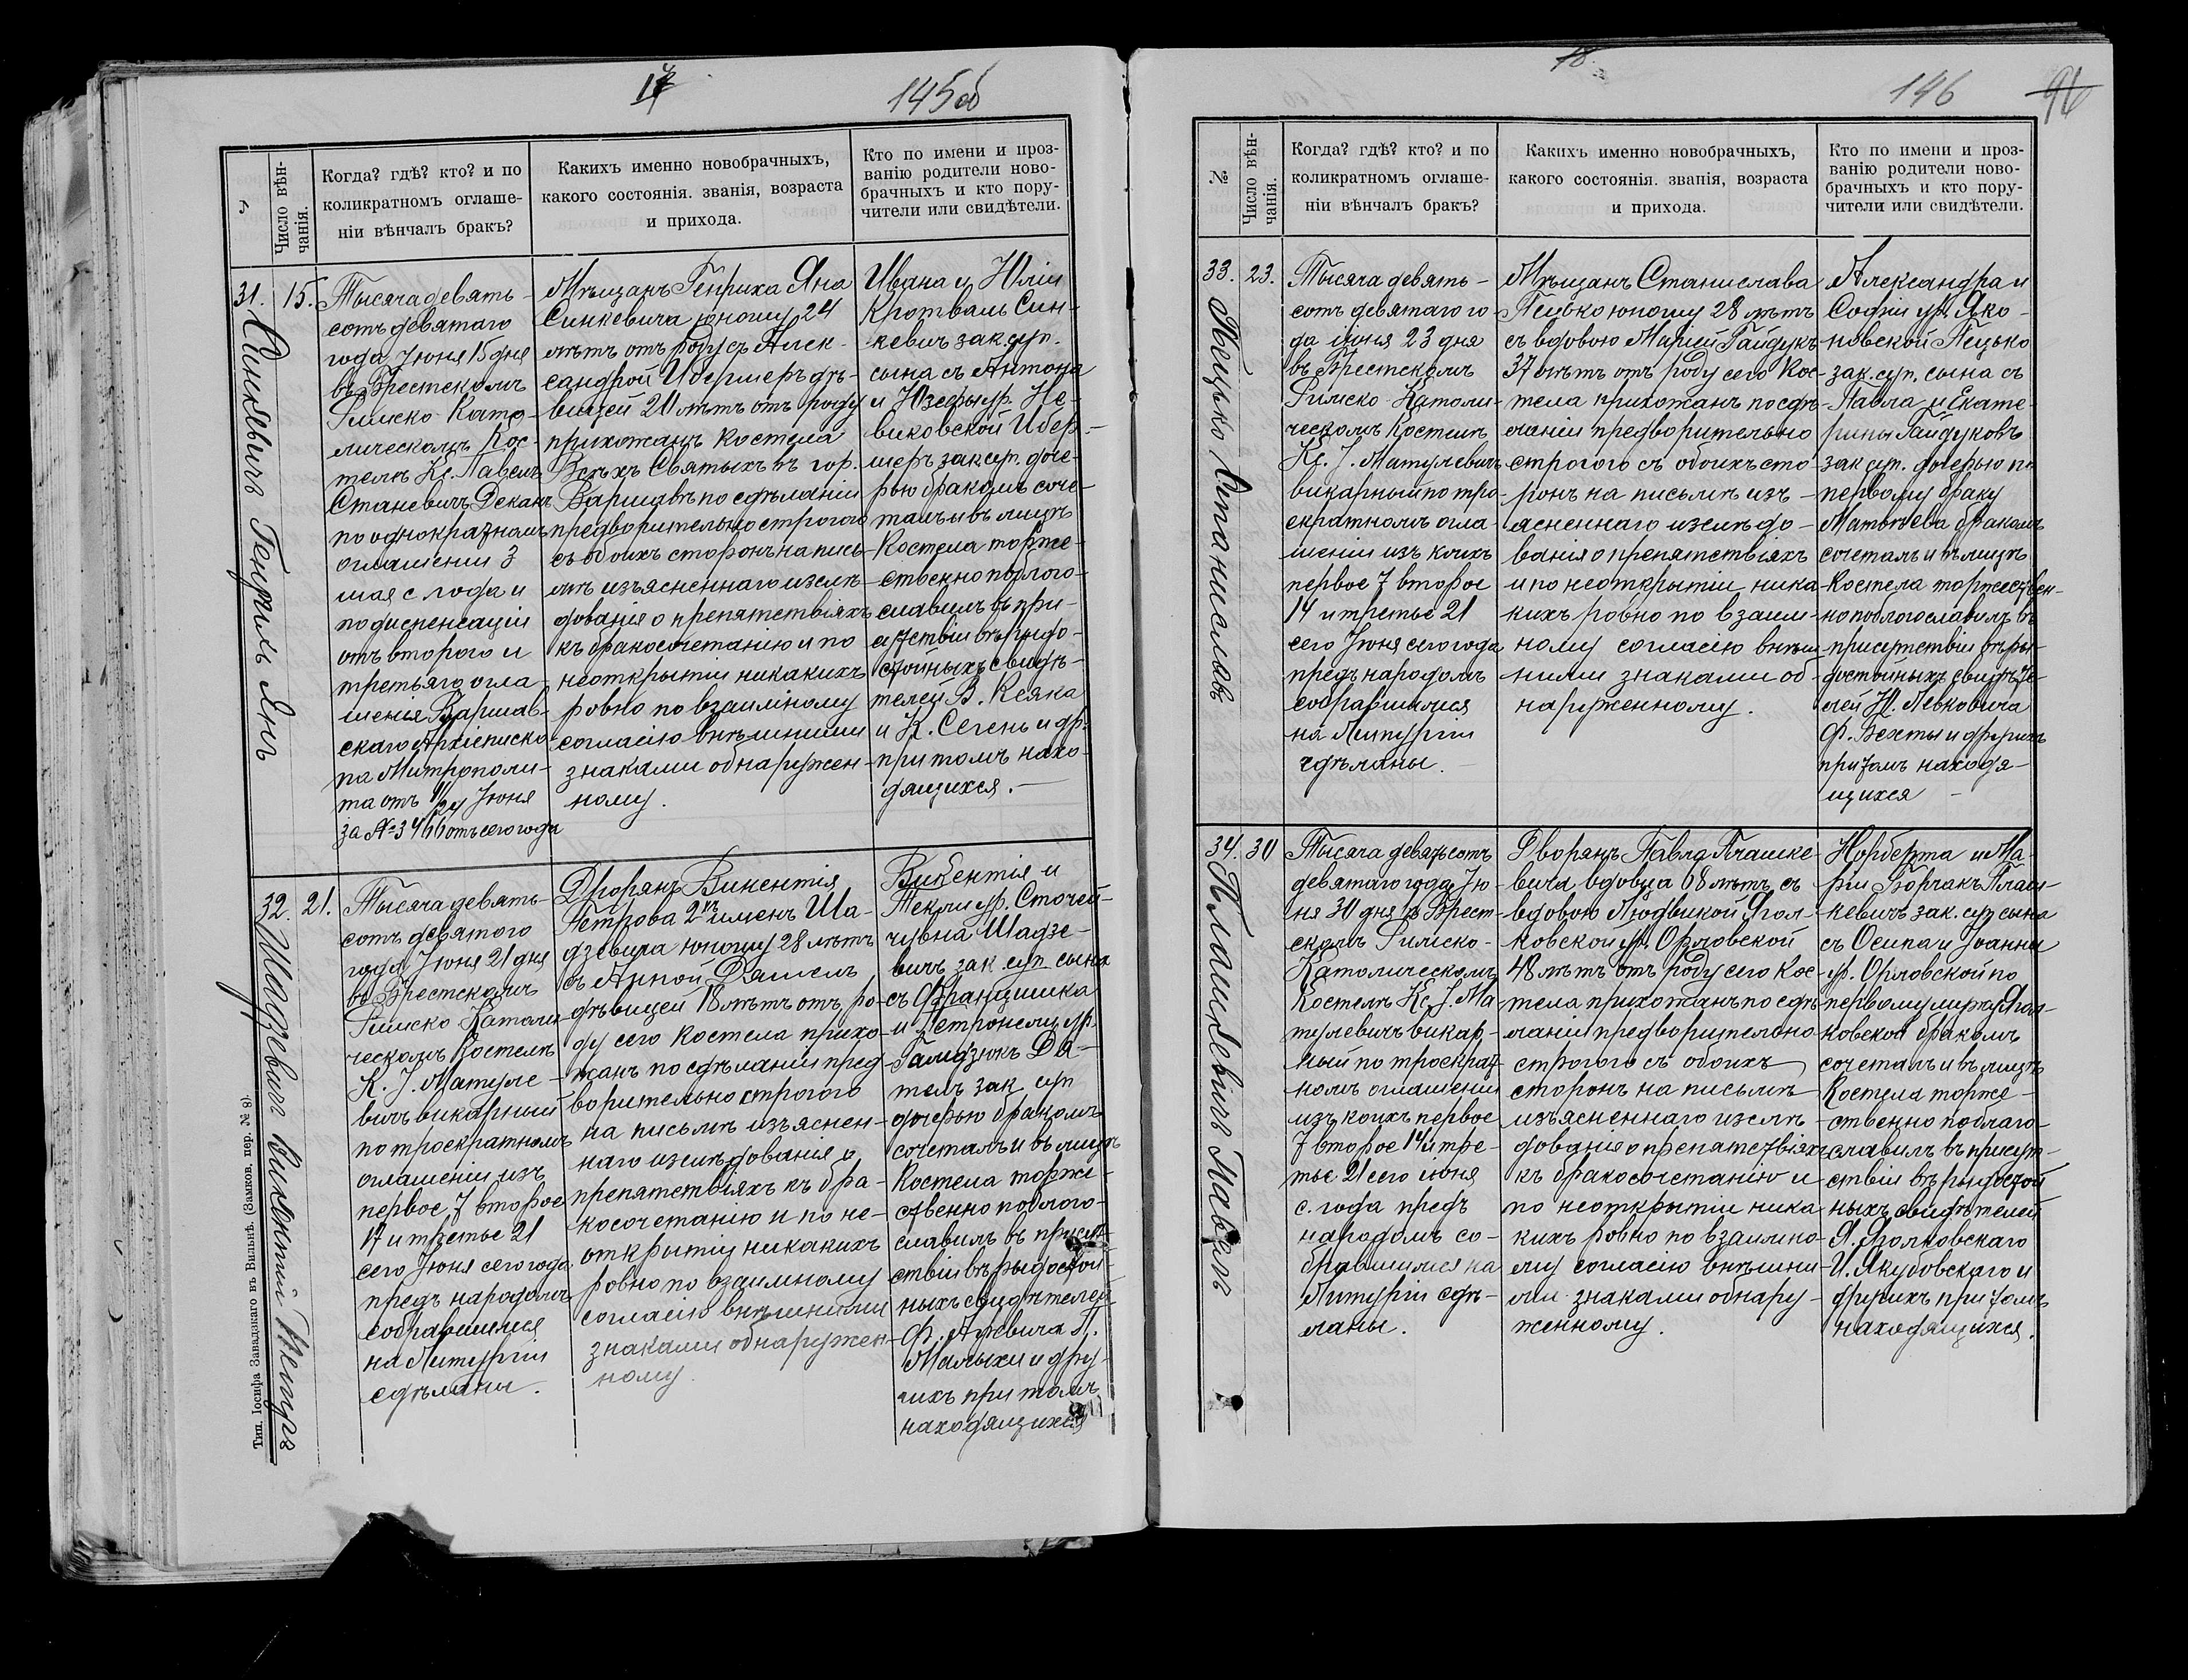 145об
Когда? гдѣ? кто? и по
коликратномъ оглаше-
ніи вѣнчалъ бракъ?
Каких­ъ именно новобрачныхъ,
какого состоянія. званія, возраста
и прихода.
Кто по имени и проз-
ванію родители ново-
брачныхъ и кто пору-
чители или свидѣтели.
Число вѣн-
чанія.
31.
15.
Синкевичъ Генрихъ Янъ
Тысяча девять-
сотъ девятаго
года Іюня 15 дня
въ Брестскомъ
Римско Като-
лическомъ Кос-
телѣ Кс. Павелъ
Станевичъ Деканъ
по однократномъ
оглашеніи 3
мая с года и
по диспенсаціи
отъ второго и
третьяго огла-
шенія Варшав-
скаго Архіеписко-
па Митрополи-
та отъ Іюня
за №3466 отъ сего года
Мѣщанъ Генриха Яна
Синкевича юношу 24
лѣтъ отъ роду съ Алек-
сандрой Ибермеръ дѣ-
вицей 20 лѣтъ отъ роду
прихожанъ костела
Всѣхъ Святыхъ въ гор.
Варшавѣ по сдѣланіи
предворительно строгого
съ обоихъ сторонъ на пись-
мѣ изъясненнаго изслѣ-
дованіе о препятствіяхъ
къ бракосочетанію и по
неоткрытіи никакихъ
ровно по взаимному
согласію внѣшними
знаками обнаружен-
ному.
Ивана и Юліи
Кротваль Син-
кевич зак. суп.
сына съ Антона
и Юзефы ур. Не-
виковской Ибер-
меръ зак суп. доче-
рью бракомъ соче-
талъ и въ лицѣ
Костела торже-
ственно поблого-
славилъ въ при-
сутствіи вѣридо-
стойныхъ свидѣ-
телей В. Ксяка
и К. Сегень и др.
при томъ нахо-
дящихся.
32.
21.
Шадзевичъ Викентій Петръ
Тысяча девять-
сотъ девятого
года Іюня 21 дня
въ Брестскомъ
Римско Католи-
ческомъ Костелѣ
К. J. Матуле-
вичъ викарный
по троекратномъ
оглашеніи изъ
первое 7 второе
17 и третье 21
сего Іюня сего года
предъ народомъ
собравшимся
на Литургіи
сдѣланы.
Дворянъ Викентія
Петрова 2хъ именъ Ша-
дзевича юношу 28 лѣтъ
съ Анной Дашель
дѣвицей 18 лѣтъ отъ ро-
ду сего костела прихо-
жанъ по сдѣланіи пред-
ворительно строгого
на письмѣ изъяснен-
наго изслѣдованія о
препятствіяхъ къ бра-
косочетанію и по не-
открытіи никакихъ
ровно по взаимному
согласію внѣшними
знаками обнаружен-
ному.
Викентія и
Текли ур. Сточей-
чувна Шадзе-
вичъ зак суп сына
съ Францишка
и Петронели ур.
зак суп
дочерью бракомъ
сочеталъ и въ лицѣ
Костела торже-
ственно поблого-
славилъ въ присут-
ствіи вѣрыдостой-
ныхъ свидѣтелей
Ф. Ажвича П.
Малыхи и дру-
гихъ при томъ
находящихся
Тип. Іосифа Завадзкаго въ Вильнѣ. (Замков. пер. № 8).
18.
146
96
№
Число вѣн-
чанія.
Когда? гдѣ? кто? и по
коликратномъ оглаше-
ніи вѣнчалъ бракъ?
Какихъ именно новобрачныхъ,
какого состоянія. званія, возраста
и прихода.
Кто по имени и проз-
ванію родители ново-
брачныхъ и кто пору-
чители или свидѣтели.
33.
23.
Пецько Станиславъ
Тысяча девять-
сотъ девятаго го-
да іюня 23 дня
въ Брестскомъ
Римско Католи-
ческомъ Костелѣ
Кс. J. Матулевичъ
викарный по тро-
екратномъ огла-
шеніи изъ коихъ
первое 7 второе
14 и третье 21
сего Іюня сего года
предъ народомъ
собравшимся
на Литургіи
сдѣланы.
Мѣщанъ Станислава
Пецько юношу 28 лѣтъ
съ вдовою Маріей Гайдукъ
37 лѣтъ отъ роду сего Кос-
тела прихожанъ по сдѣ-
ланіи предворительно
строгого съ обоихъ сто-
ронъ на письмѣ изъ-
ясненнаго изслѣдо-
ванія о препятствіяхъ
и по неоткрытіи ника
кихъ ровно по взаим-
ному согласію внѣш-
ними знаками об-
наруженному.
Александра и
Софіи ур. Яко-
новской Пецько
зак. суп. сына съ
Павла и Екате-
рины Гайдуковъ
зак суп. дочерью по
первому браку
Матвѣева бракомъ
сочеталъ и въ лицѣ
Костела торжествен-
но поблогославилъ въ
присутствіи вѣры-
достойныхъ свидѣте-
лей Ю. Левковича
Ф. Вехты и другихъ
притомъ находя-
щихся
34.
30
Плашкевичъ Павелъ
Тысяча девятьсотъ
девятаго года Ію-
ня 30 дня въ Брест-
скомъ Римско-
Католическомъ
Костелѣ Кс. J. Ма
тулевичъ викар-
ный по троекрат-
номъ оглашеніи
изъ коихъ первое
7 второе 14 и тре-
тье 21 сего июня
с. года предъ
народомъ со-
бравшимся на
Литургіи сдѣ-
ланы.
Дворянъ Павла Плашке-
вича вдовца 68 лѣтъ съ
вдовою Людвикой Ягол-
ковской ур. Орловской
48 лѣтъ отъ роду сего Кос-
тела прихожанъ по сдѣ-
ланіи предворительно
строгого съ обоихъ
сторонъ на письмѣ
изъясненнаго изслѣ-
дованіе о препятствіяхъ
къ бракосочетанію и
по неоткрытіи ника
кихъ ровно по взаимно-
му согласію внѣшни-
ми знаками обнару-
женному.
Норберта и Ма-
ріи Борчакъ Плаш-
кевичъ зак. суп сына
съ Осипа и Іоанны
ур. Орловской по
первому мужу Ягол-
ковской бракомъ
сочеталъ и въ лицѣ
Костела торже-
ственно поблаго-
славилъ въ присут-
ствіи вѣрыдостой
ныхъ свидѣтелей
Я. Яголковскаго
И. Якубовскаго и
другихъ при томъ
находящихся.